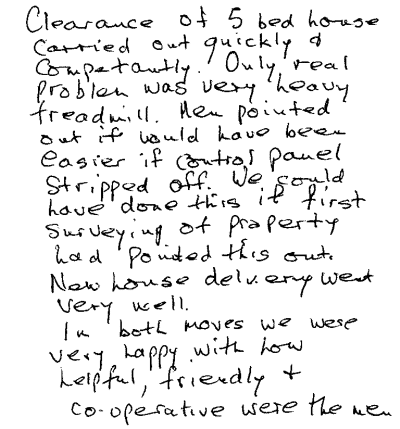 Clearance of 5 bed house
Carried out quickly &
Competantly. Only real
Problem was very heavy
treadmill. Men pointed
out it would have been
easier if control panel
Stripped off. We could
have done this if first
Surveying of Property
had Pointed this out.
New house delivery went
very well.
In both moves we were
very happy with how
helpful, friendly +
co-operative were the men